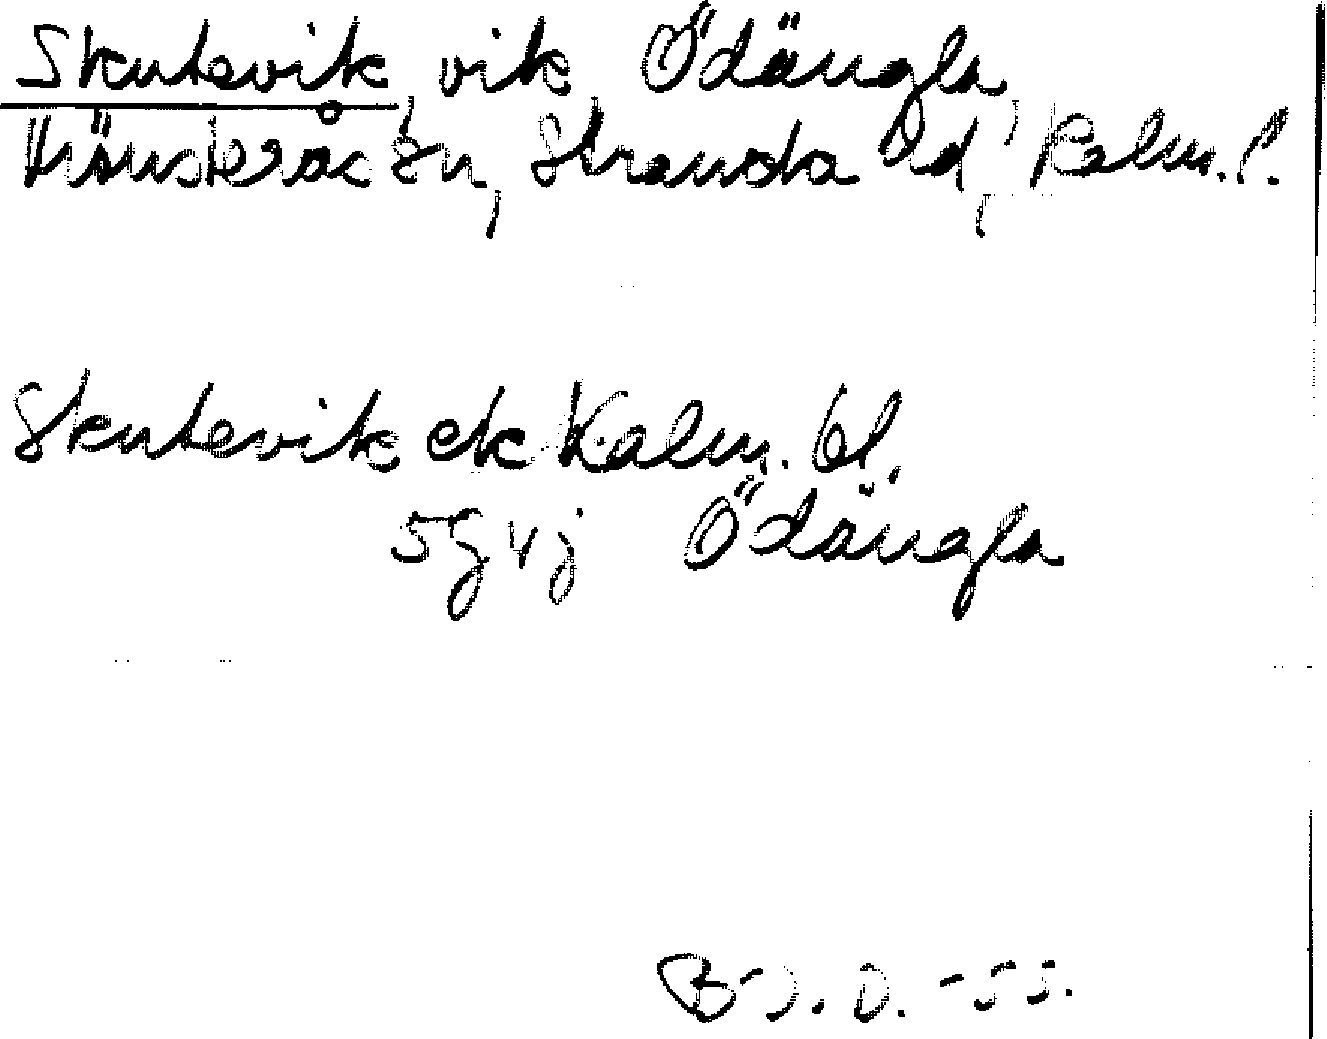 Skutevik, vik, Ödängla,
Mönsterås sn, Stranda hd, Kalm. l.
Skutevik ek Kalm. bl.
5g 4j Ödängla
B-J. O. -55.